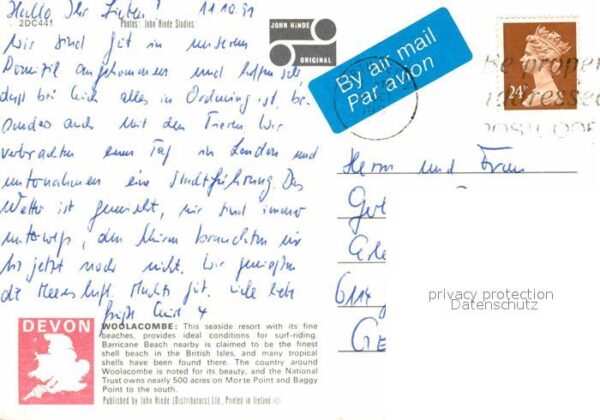 Hallo Ihr Lieben! 11.10.91
2DC441 Photos: John Hinde Studios.
Wir sind gut in unserem
Domizil angekommen und hoffen sehr,
daß bei Euch alles in Ordnung ist, be-
sonders auch mit den Tieren. Wir
verbrachten einen Tag in London und
unternahmen eine Stadtführung. Das
Wetter ist gemischt, wir sind immer
unterwegs, den Schirm brauchten wir
bis jetzt noch nicht. Wir genießen
die Meeresluft. Macht's gut. Viele liebe
Grüße
JOHN HINDE
ORIGINAL
By air mail
Par avion
24P
Be proper
addressed
POSTCODE
Herrn und Frau
Gut
611
GE
privacy protection
Datenschutz
DEVON
WOOLACOMBE: This seaside resort with its fine
beaches, provides ideal conditions for surf-riding.
Barricane Beach nearby is claimed to be the finest
shell beach in the British Isles, and many tropical
shells have been found there. The country around
Woolacombe is noted for its beauty, and the National
Trust owns nearly 500 acres on Morte Point and Baggy
Point to the south.
Published by John Hinde (Distributors) Ltd. Printed in Ireland ©